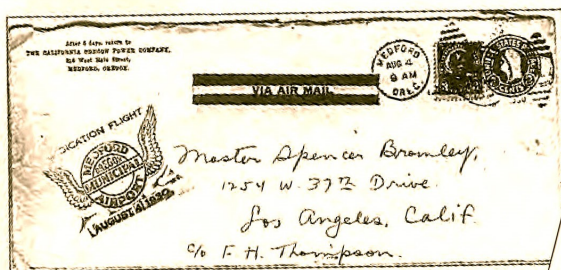 After 5 days, return to
THE CALIFORNIA OREGON POWER COMPANY,
216 West Main Street,
MEDFORD, OREGON.
VIA AIR MAIL
MEDFORD
AUG 4
9 AM
OREG.
UNITED STATES
2 CENTS
DEDICATION FLIGHT
MEDFORD
OREGON
MUNICIPAL
AIRPORT
AUGUST 4 1930
Master Spencer Bromley,
1254 W. 37th Drive
Los Angeles, Calif.
c/o F. H. Thompson.